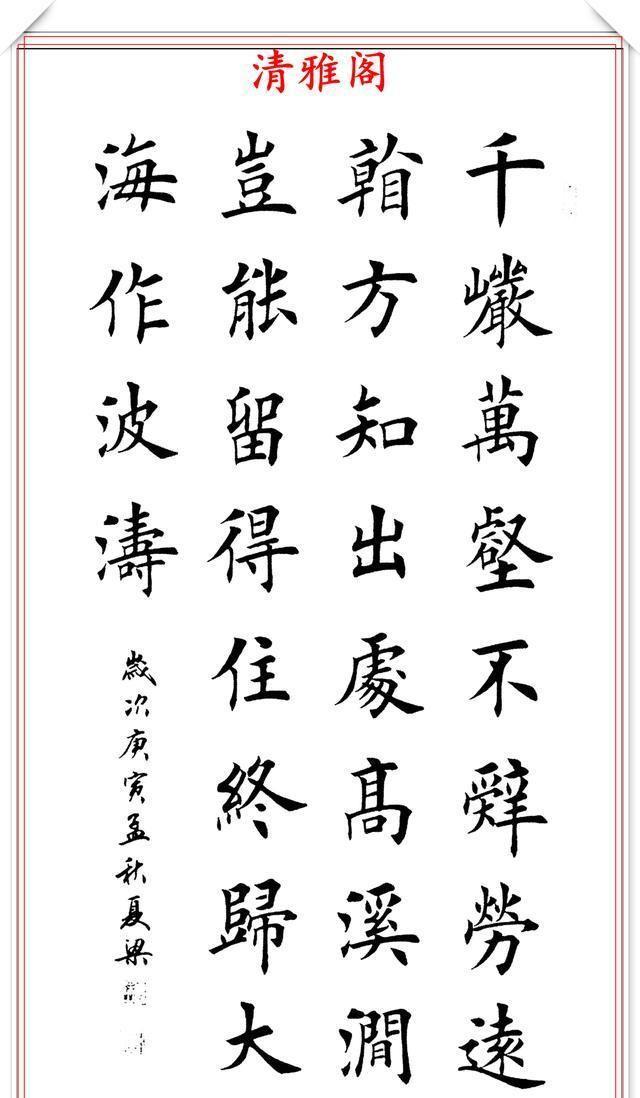 清雅阁
千巖萬壑不辭勞遠
看方知出處高溪澗
豈能留得住終歸大
海作波濤
歲次庚寅孟秋夏梁